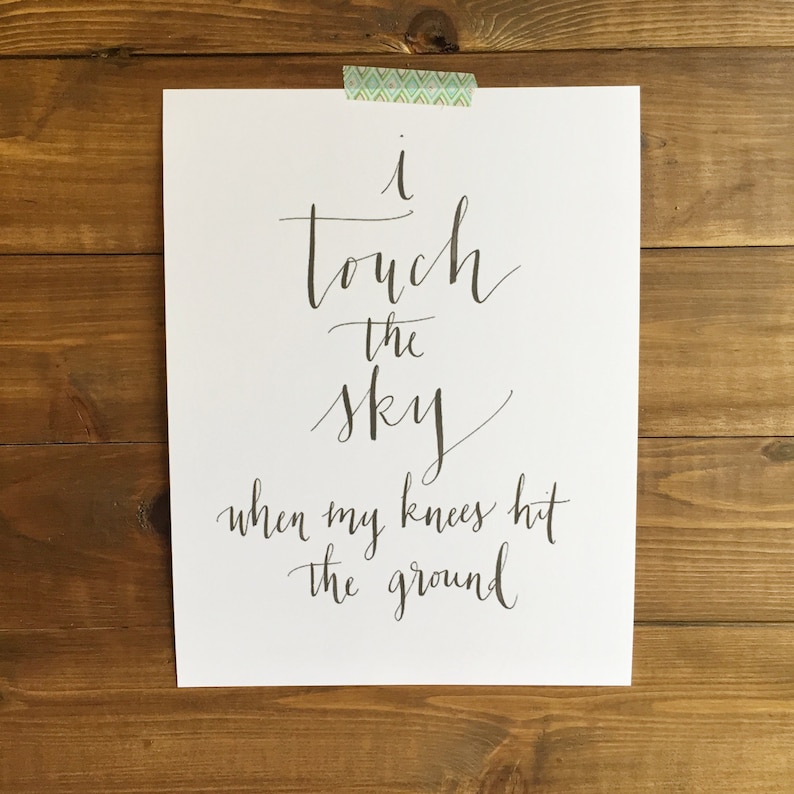 i
touch
the
sky
when my knees hit
the ground